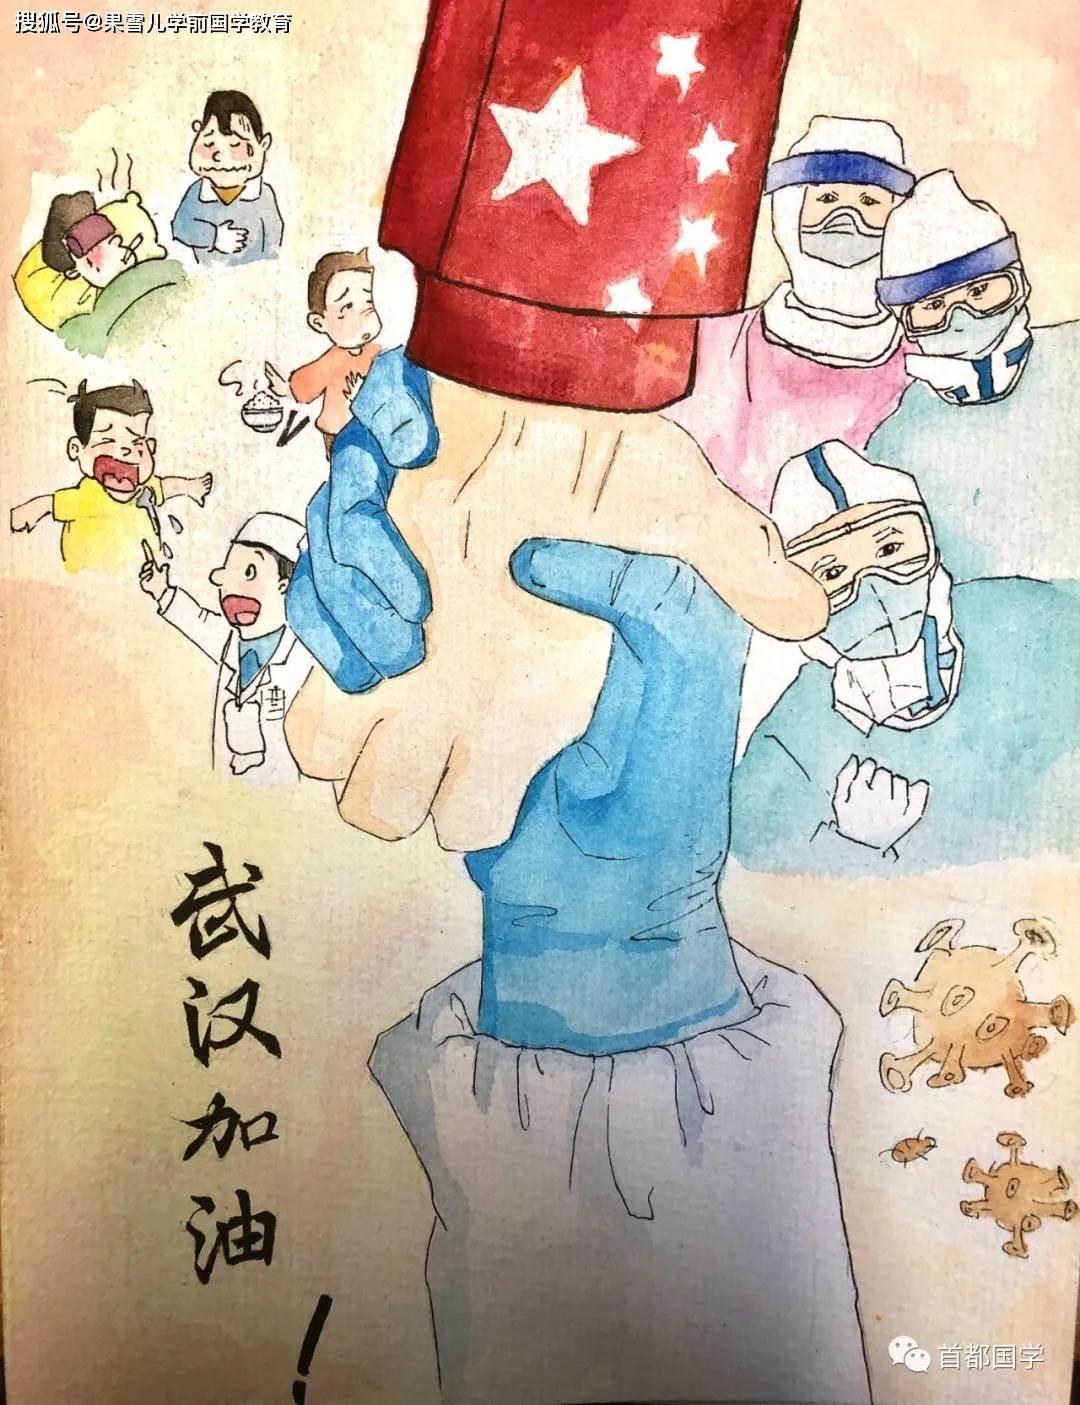 搜狐号@果雪儿学前国学教育
武汉加油！
首都国学